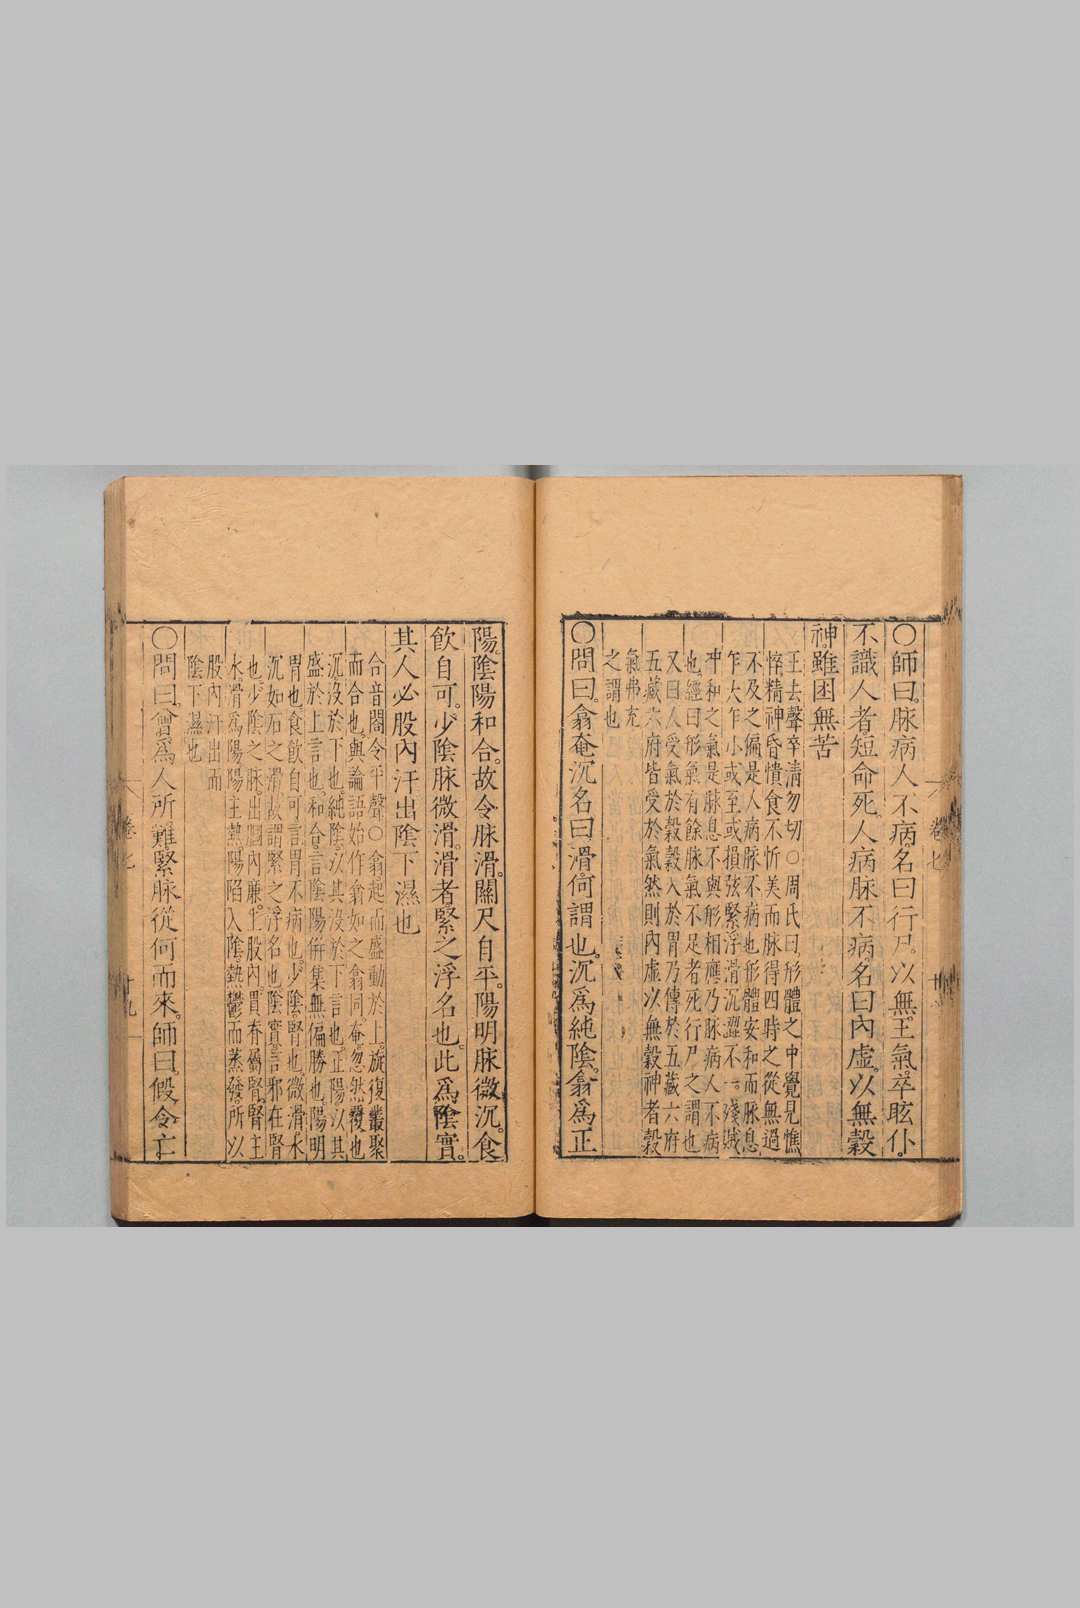 卷七
○師曰。脉病人不病。名曰行尸。以無王氣。卒眩仆。
不識人者。短命死。人病脉不病。名曰內虛。以無穀
神。雖困無苦
王去聲卒清勿切○周氏曰形體之中覺見憔
悴精神昏憒食不忻美而脉得四時之從無過
不及之偏是人病脉不病也形體安和而脉息
乍大乍小或至或損弦緊浮滑沉澀不一殘賊
冲和之氣是脉息不與形相應乃脉病人不病
也經曰形氣有餘脉氣不足者死行尸之謂也
又曰人受氣於穀穀入於胃乃傳於五藏六府
五藏六府皆受於氣然則內虛以無穀神者穀
氣弗充
之謂也
○問曰。翕奄沉。名曰滑。何謂也。沉爲純陰。翕爲正
陽。陰陽和合。故令脉滑。關尺自平。陽明脉微沉。食
飲自可。少陰脉微滑。滑者緊之浮名也。此爲陰實。
其人必股內汗出。陰下濕也
合音閤令平聲○翕起而盛動於上。旋復叢聚
而合也。與論語始作翕如之翕同。奄忽然覆也
沉沒於下也。純陰以其沒於下言也。正陽以其
盛於上言也。和合言陰陽倂集無偏勝也。陽明
胃也。食飲自可言胃不病也。少陰腎也。微滑水
沉如石之滑。故謂緊之浮名也。陰實言邪在腎
也。少陰之脉出膕內廉。上股內貫脊屬腎。腎主
水。滑爲陽。陽主熱。陽陷入陰。熱鬱而蒸發。所以
股內汗出而
陰下濕也
○問曰。曾爲人所難。緊脉從何而來。師曰。假令亡
卷七
廿九